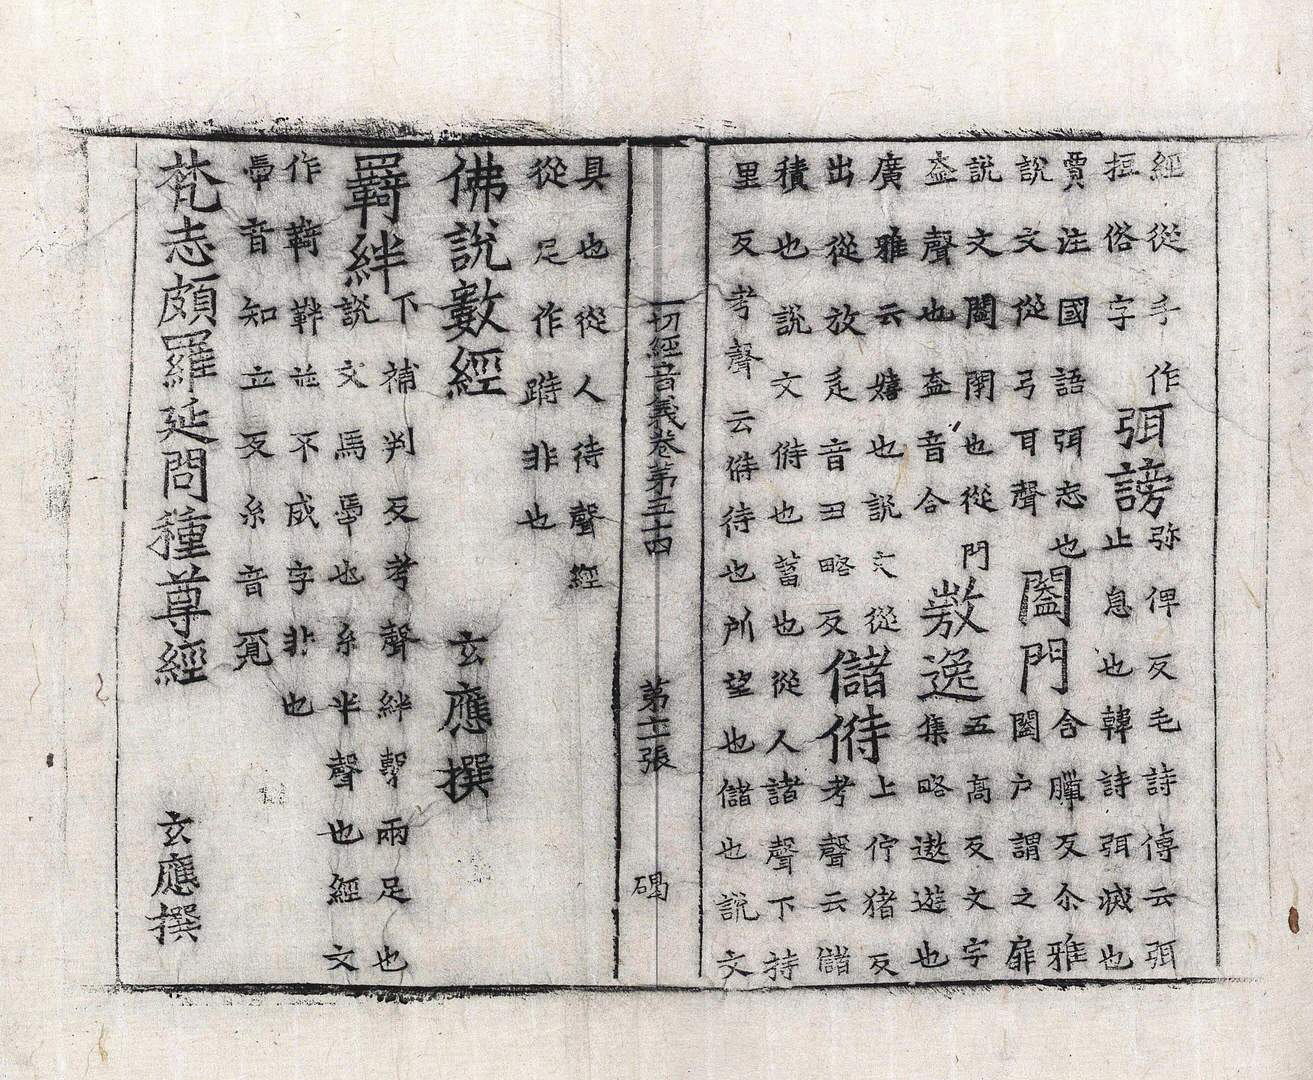 經從手作
抠俗字
弭謗
弥俾反毛詩傳云弭
止息也韓詩弭滅也
賈注國語弭忘也
說文從弓耳聲
闔門
含臘反尒雅
闔户謂之扉
說文闔閇也從門
盍聲也盍音合
敖逸
五高反文字
集略遨遊也
廣雅云嬉也說文從
出從放辵音丑略反
儲偫
上佇猪反
考聲云儲
積也說文偫也蓄也從人諸聲下持
里反考聲云偫待也所望也儲也說文
一切經音義卷第五十四 第十一張 碣
具也從人待聲經
從足作跱非也
佛說數經 玄應撰
羇絆
下補判反考聲絆繫兩足也
說文馬馽也糸半聲也經文
作䩭靽並不成字非也
馽音知立反糸音覓
梵志頗羅延問種尊經 玄應撰